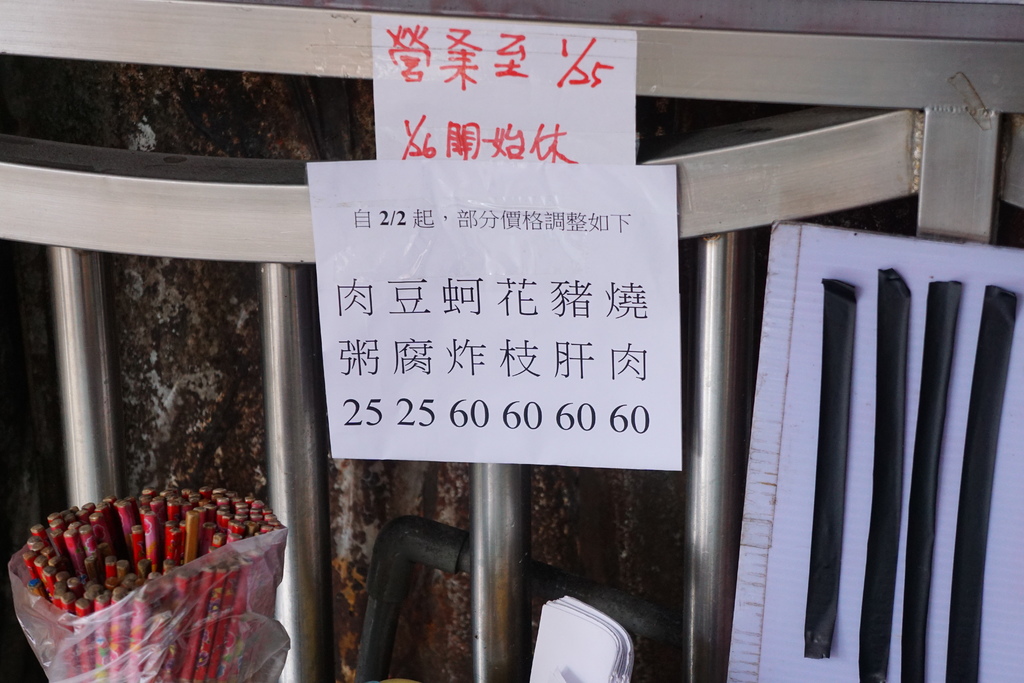 營業至 1/25
1/26 開始休
自 2/2 起，部分價格調整如下
肉豆蚵花豬燒
粥腐炸枝肝肉
25 25 60 60 60 60